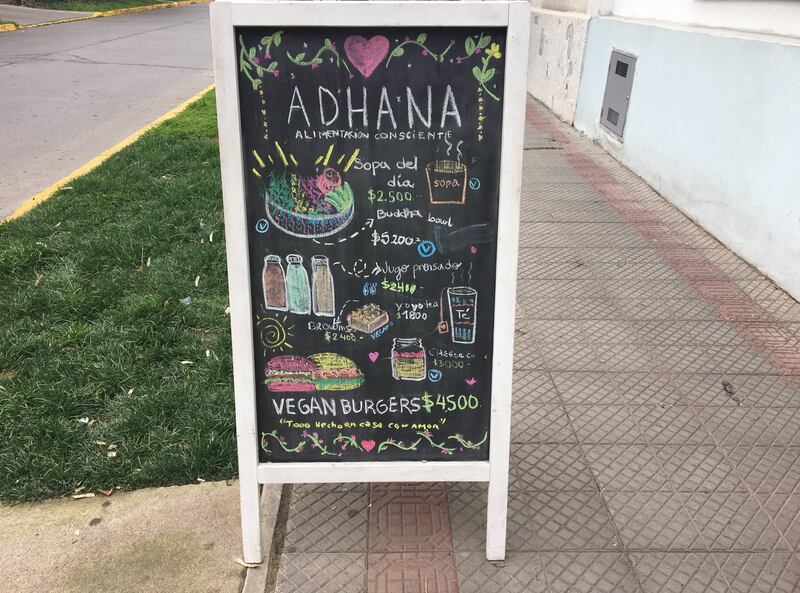 ADHANA
ALIMENTACIÓN CONSCIENTE
Sopa del día
$2.500.-
sopa
V
Buddha bowl
$5.200.-
V
V
Jugo prensado
$2.400
yoyo tea
$1800
Té
BROWNIE
$2.400.-
VEGANO
CHEESECA
$3000.-
V
VEGAN BURGERS $4500.
"Todo hecho en casa con AMOR"